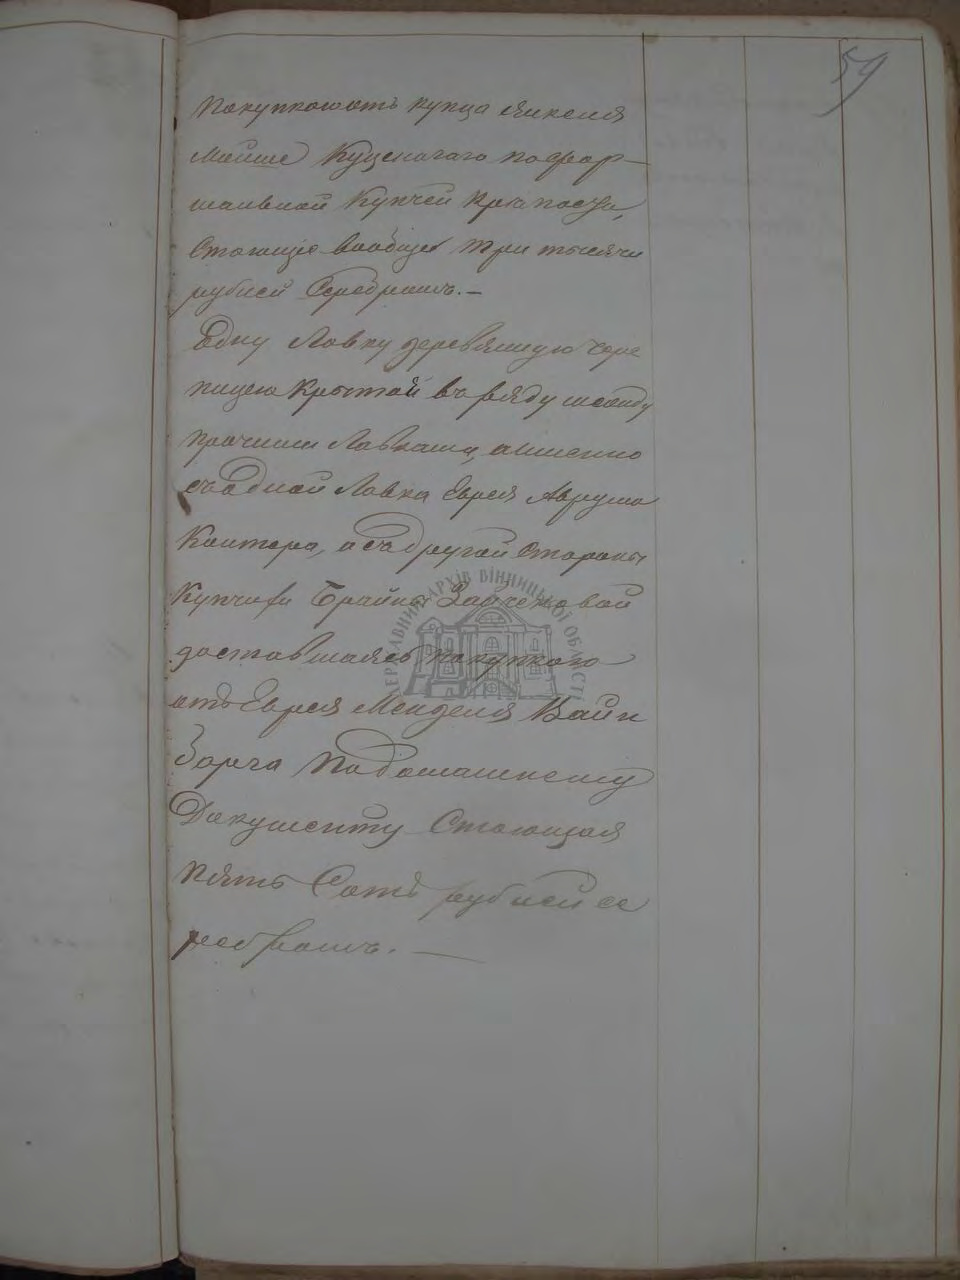 59
покупкою отъ купца Янкеля
Мошко Куценагаго по фор-
мальной купчей крепости,
стоющие вообще три тысячи
рублей серебромъ.—
Едну лавку деревянную чере
пицею крытой въ ряду между
прочими лавками, а именно
съ одной лавка Еврея Аврума
Контера, а съ другой стороны
купчихи Брайны Зайченовой
доставшаясь покупкою
отъ Еврея Менделя Вайн
по домашнему
документу стоющая
пять сотъ рублей се
ребромъ.—
ДЕРЖАВНИЙ АРХІВ ВІННИЦЬКОЇ ОБЛАСТІ